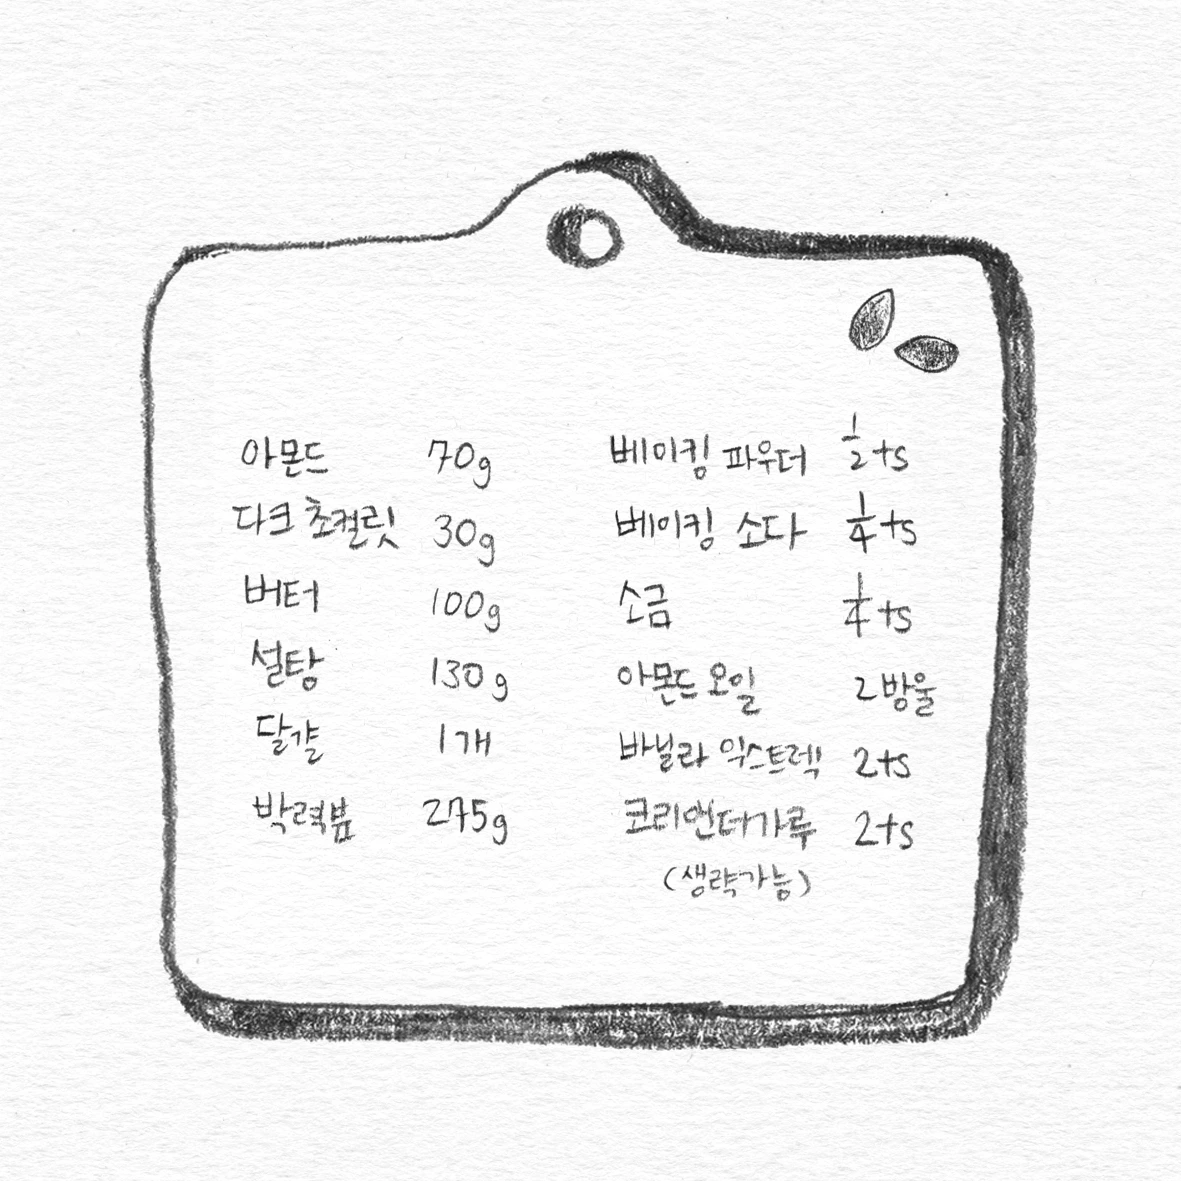 아몬드 70g
다크 초컬릿 30g
버터 100g
설탕 130g
달걀 1개
박력분 275g
베이킹 파우더 1/2 ts
베이킹 소다 1/4 ts
소금 1/4 ts
아몬드 오일 2방울
바닐라 익스트렉 2ts
코리앤더가루 2ts
(생략가능)